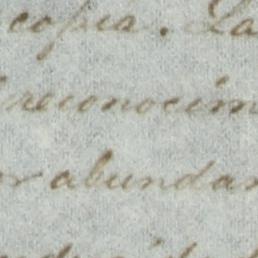 copia. La
reconocim
abundan